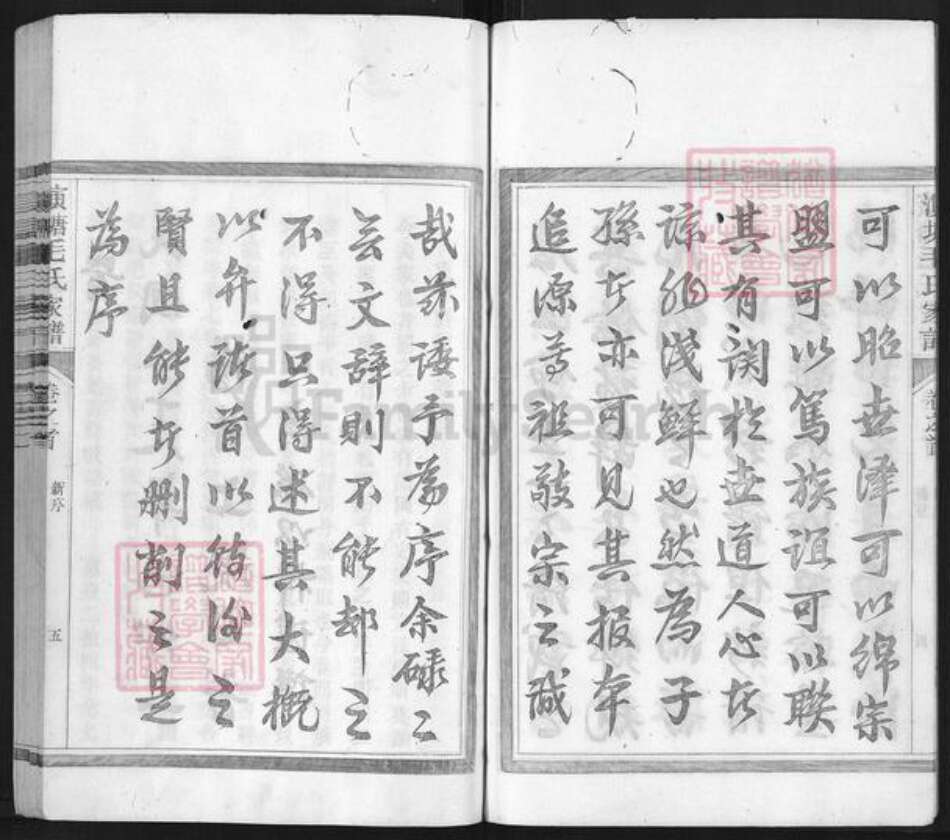 可以昭世澤可以綿宗
盟可以篤族誼可以聯
其有關於世道人心者
諒非淺鮮也然為子
孫者亦可見其報本
追源尊祖敬宗之誠
哉茲諉予為序余碌々
無文辭則不能却之
不得只得述其大概
以弁諸首以待後之
賢且能者刪削之是
為序
毛氏家譜
卷之首
新序
五
FamilySearch